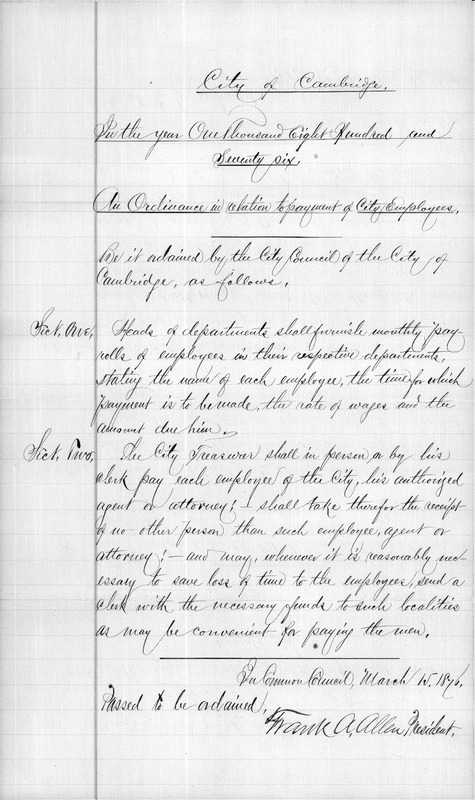 City of Cambridge.
In the year One Thousand Eight Hundred and
Seventy six.
An Ordinance in relation to payment of City Employees.
Be it ordained by the City Council of the City of
Cambridge, as follows.
Sect. One, Heads of departments shall furnish monthly pay-
rolls of employees in their respective departments,
stating the name of each employee, the time for which
payment is to be made, the rate of wages and the
amount due him.
Sect. Two, The City Treasurer shall in person or by his
clerk pay each employee of the City, his authorized
agent or attorney;— shall take therefor the receipt
of no other person than such employee, agent or
attorney;— and may, whenever it is reasonably nec-
essary to save loss of time to the employees, send a
clerk with the necessary funds to such localities
as may be convenient for paying the men.
In Common Council, March 15. 1876.
Passed to be ordained,
Frank A. Allen President.